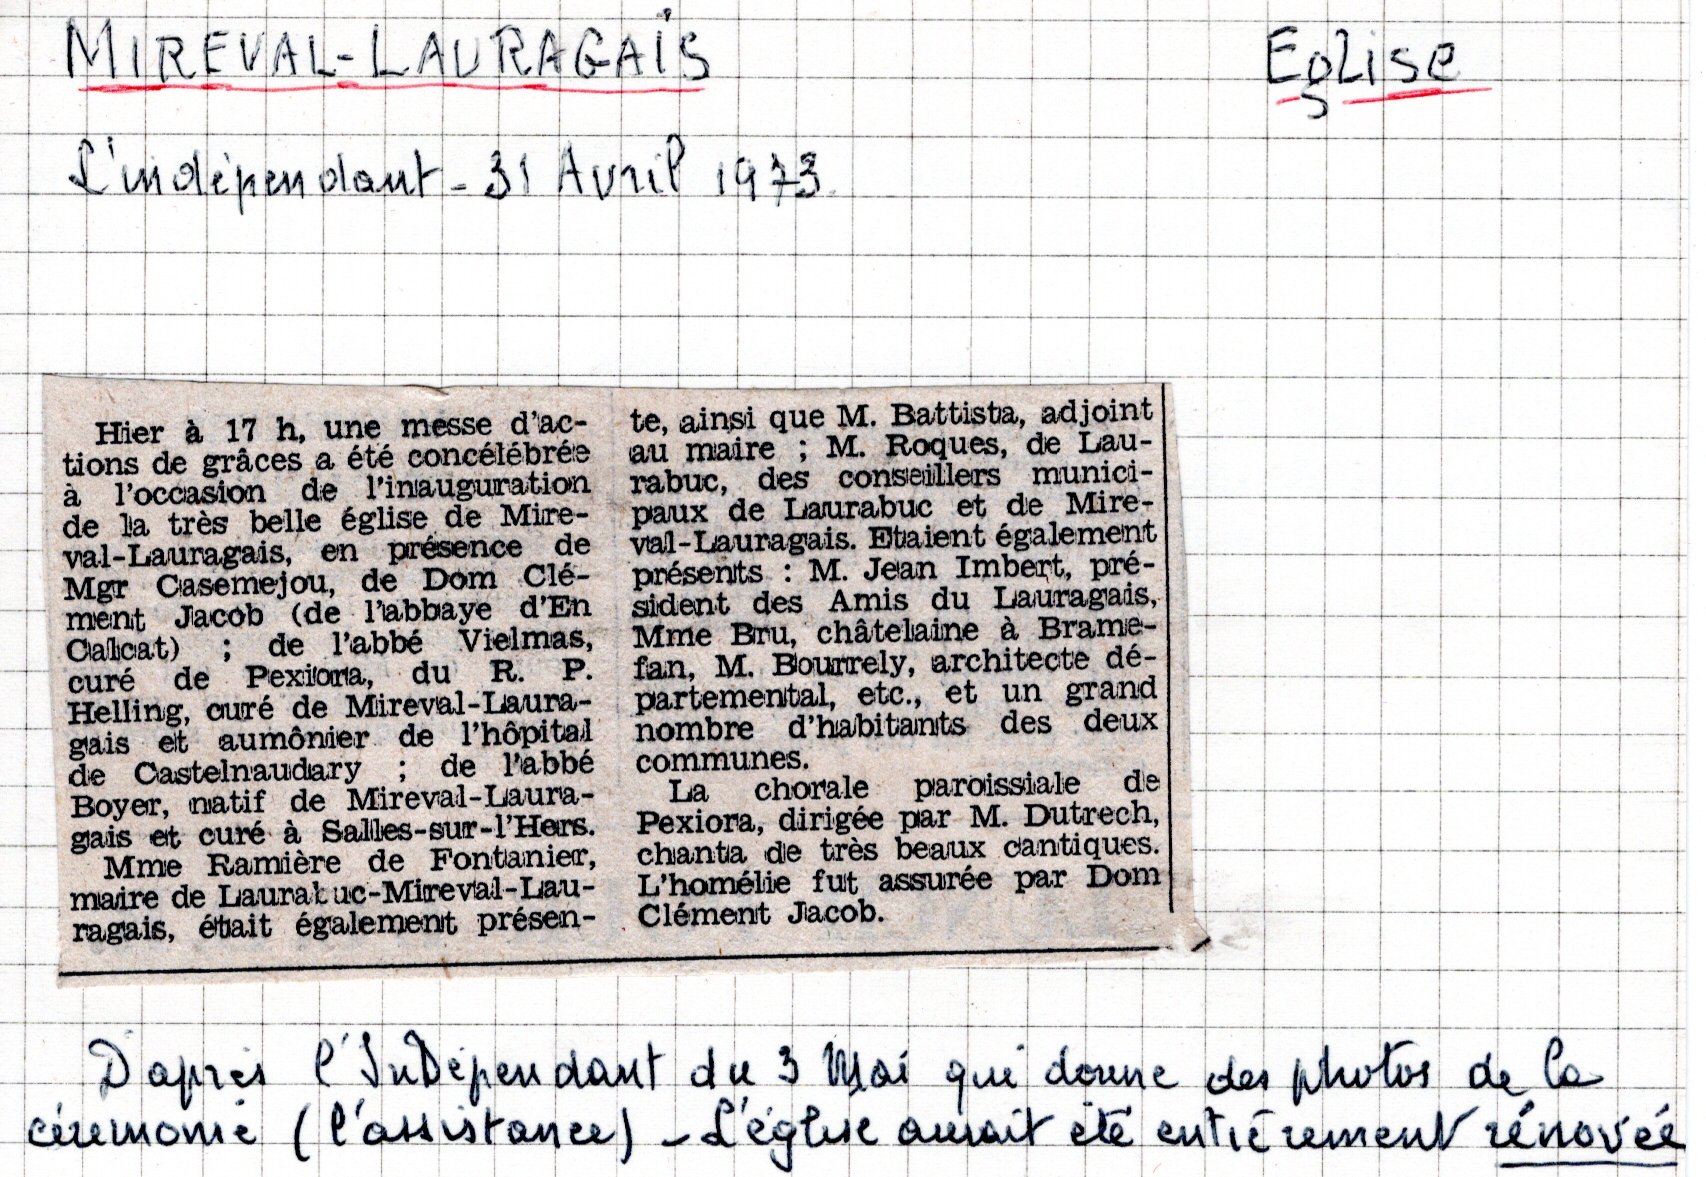 MIREVAL-LAURAGAIS
Eglise
L'indépendant - 31 Avril 1973
Hier à 17 h, une messe d'ac-
tions de grâces a été concélébrée
à l'occasion de l'inauguration
de la très belle église de Mire-
val-Lauragais, en présence de
Mgr Casemejou, de Dom Clé-
ment Jacob (de l'abbaye d'En
Calcat) ; de l'abbé Vielmas,
curé de Pexiora, du R. P.
Helling, curé de Mireval-Laura-
gais et aumônier de l'hôpital
de Castelnaudary ; de l'abbé
Boyer, natif de Mireval-Laura-
gais et curé à Salles-sur-l'Hers.
Mme Ramière de Fontanier,
maire de Laurabuc-Mireval-Lau-
ragais, était également présen-
te, ainsi que M. Battista, adjoint
au maire ; M. Roques, de Lau-
rabuc, des conseillers munici-
paux de Laurabuc et de Mire-
val-Lauragais. Etaient également
présents : M. Jean Imbert, pré-
sident des Amis du Lauragais,
Mme Bru, châtelaine à Brame-
fan, M. Bourrely, architecte dé-
partemental, etc., et un grand
nombre d'habitants des deux
communes.
La chorale paroissiale de
Pexiora, dirigée par M. Dutrech,
chanta de très beaux cantiques.
L'homélie fut assurée par Dom
Clément Jacob.
D'après l'Indépendant du 3 Mai qui donne des photos de la
cérémonie (l'assistance) - L'église aurait été entièrement rénovée